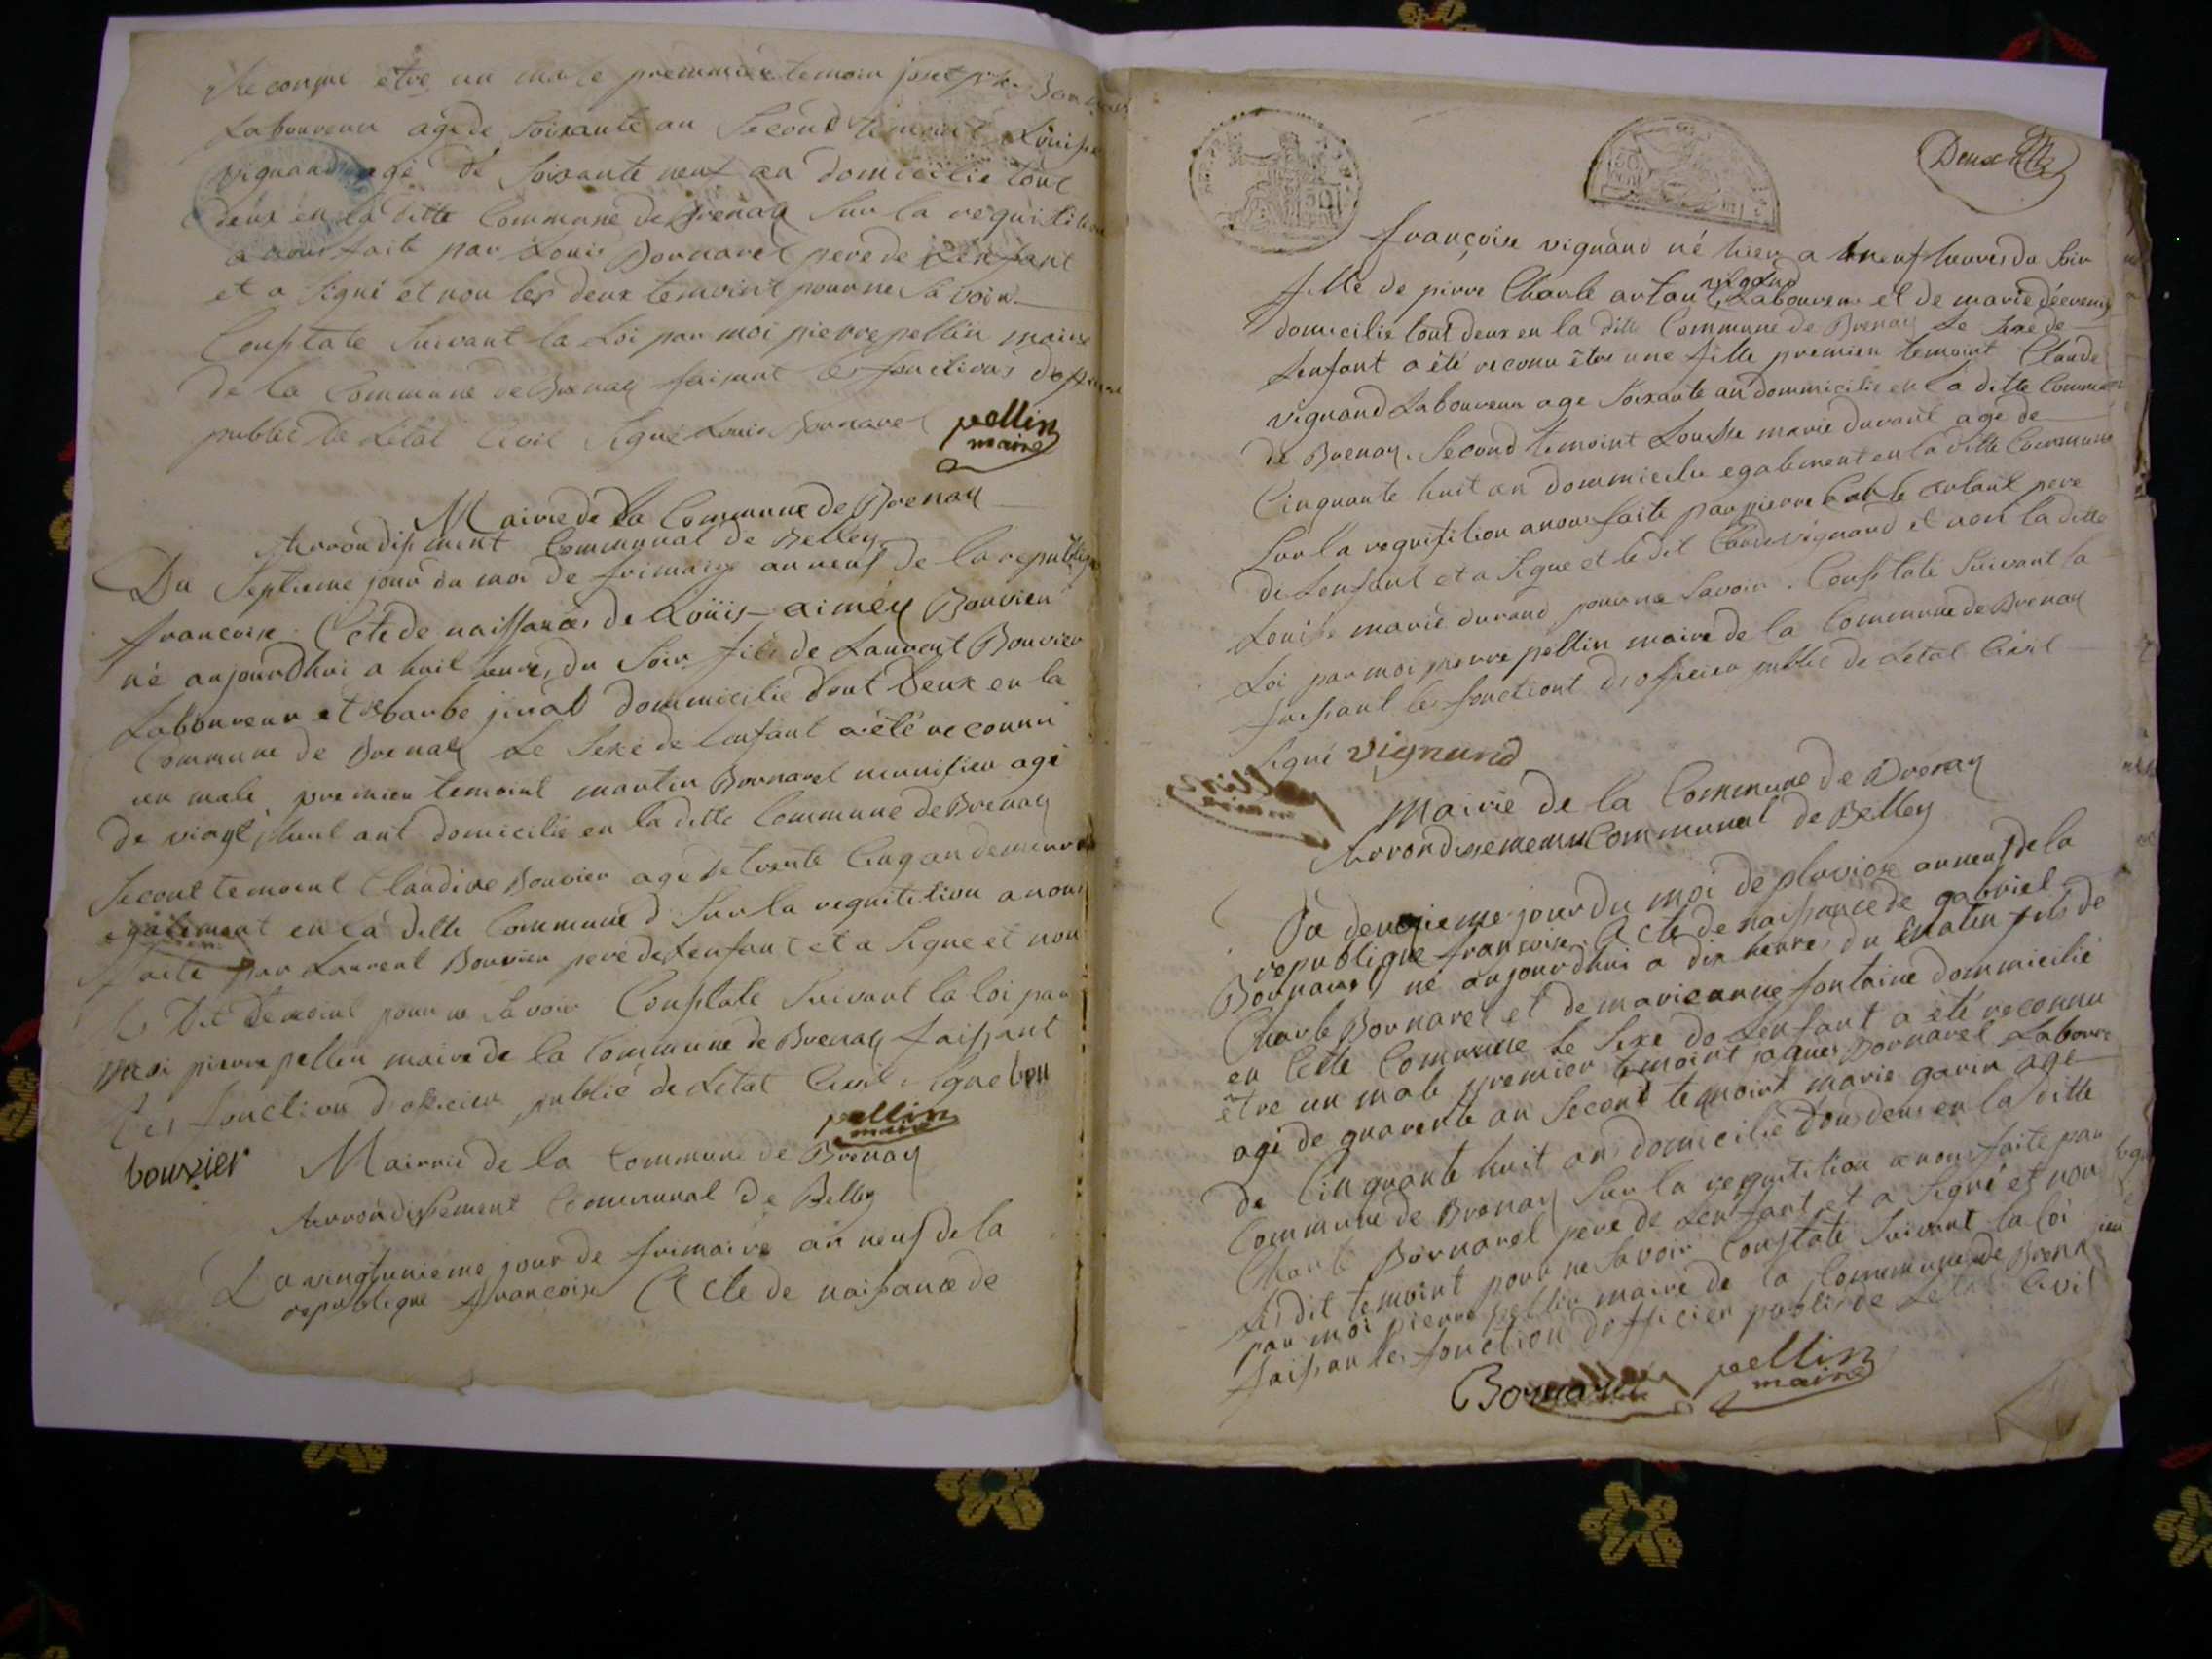 reconnu etre un male premmier temoin josetphe Bornarel
Laboureur agé de soixante an second temoint Louise
vignand agé de soixante neuf an domicilié tout
deux en la ditte Commune de Brenay sur la requisition
a nous faite par Louis Bornarel pere de L'enfant
et a signé et non les deux temoint pour ne savoir
Constate suivant la Loi par moi pierre pellin maire
de la Commune de Brenay faisant les fonctions
public de L'état Civil signé Louis Bornarel
pellin
maire
Mairie de la Commune de Brenay
Arrondisment Communal de Belley
Du septieme jour du moi de frimaire an neuf de la republique
francoise. Acte de naissance de Louis-aimé Bouvier
né aujourdhui a huit heure du soir fils de Laurent Bouvier
Laboureur et de barbe domicilié tout deux en la
Commune de Brenay Le sexe de Lenfant a été reconnu
un male premier temoint martin Bornarel agé
de vingt huit ant domicilié en la ditte Commune de Brenay
second temoint Claudine Bouvier agé de trente Cinq an
egalement en la ditte Commune sur la requisition a nous
faite par Laurent Bouvier pere de Lenfant et a signe et non
les Dit temoint pour ne savoir Constate suivant la loi par
moi pierre pellin maire de la Commune de Brenay faissant
les fonction d'officier public de L'état Civil signé bou
pellin
maire
bouvier Mairrie de la Commune de Brenay
Arrondissement Communal de Belley
La vingtunieme jour de frimaire an neuf de la
republique francoise Acte de naissance de
Deux
françoise vignand né hier a neuf heures du soir
vignand
fille de pirre Charle artaut Laboureur et de marie
domicilié tout deux en la ditte Commune de Brenay Le sexe de
Lenfant a été reconu être une fille premier temoint Claude
vignand Laboureur age soixante an dommicilié en la ditte Commune
de Brenay. second temoint Louise marie durant age de
Cinquante huit an dommicilie egalement en la ditte Commune
sur la requisition a nous faite par pierre Carle artaut pere
de Lenfant et a signe et le dit Claude vignand et non la ditte
Louise marie durand pour ne savoir. Constaté suivant la
Loi par moi pierre pellin maire de la Commune de Brenay
faissant les fonctiont d'officier public de L'état Civil
signé vignand
pellin
maire
Mairie de la Commune de Brenay
Arrondissement Communal de Belley
Du jour du moi de pluviose an neuf de la
republique francoise. Acte de naissance de gabriel
Bornarel né aujourdhui a dix heure du matin fils de
Charle Bornarel et de marieanne fontaine dommicilié
en Cette Commune Le sexe de Lenfant a été reconnu
être un male premier temoint jaques Bornarel Laboure
agé de quarente an second temoint marie garin age
de Cinquante huit an domicilié tous deux en la ditte
Commune de Brenay sur la requisition a nous faite par
Charle Bornarel pere de Lenfant et a signé et non
les dit temoint pour ne savoir Constaté suivant la loi
par moi pierre pellin maire de la Commune de Brenay
faissan les fonction d'officier public de Letat Civil
Bornarel pellin
maire